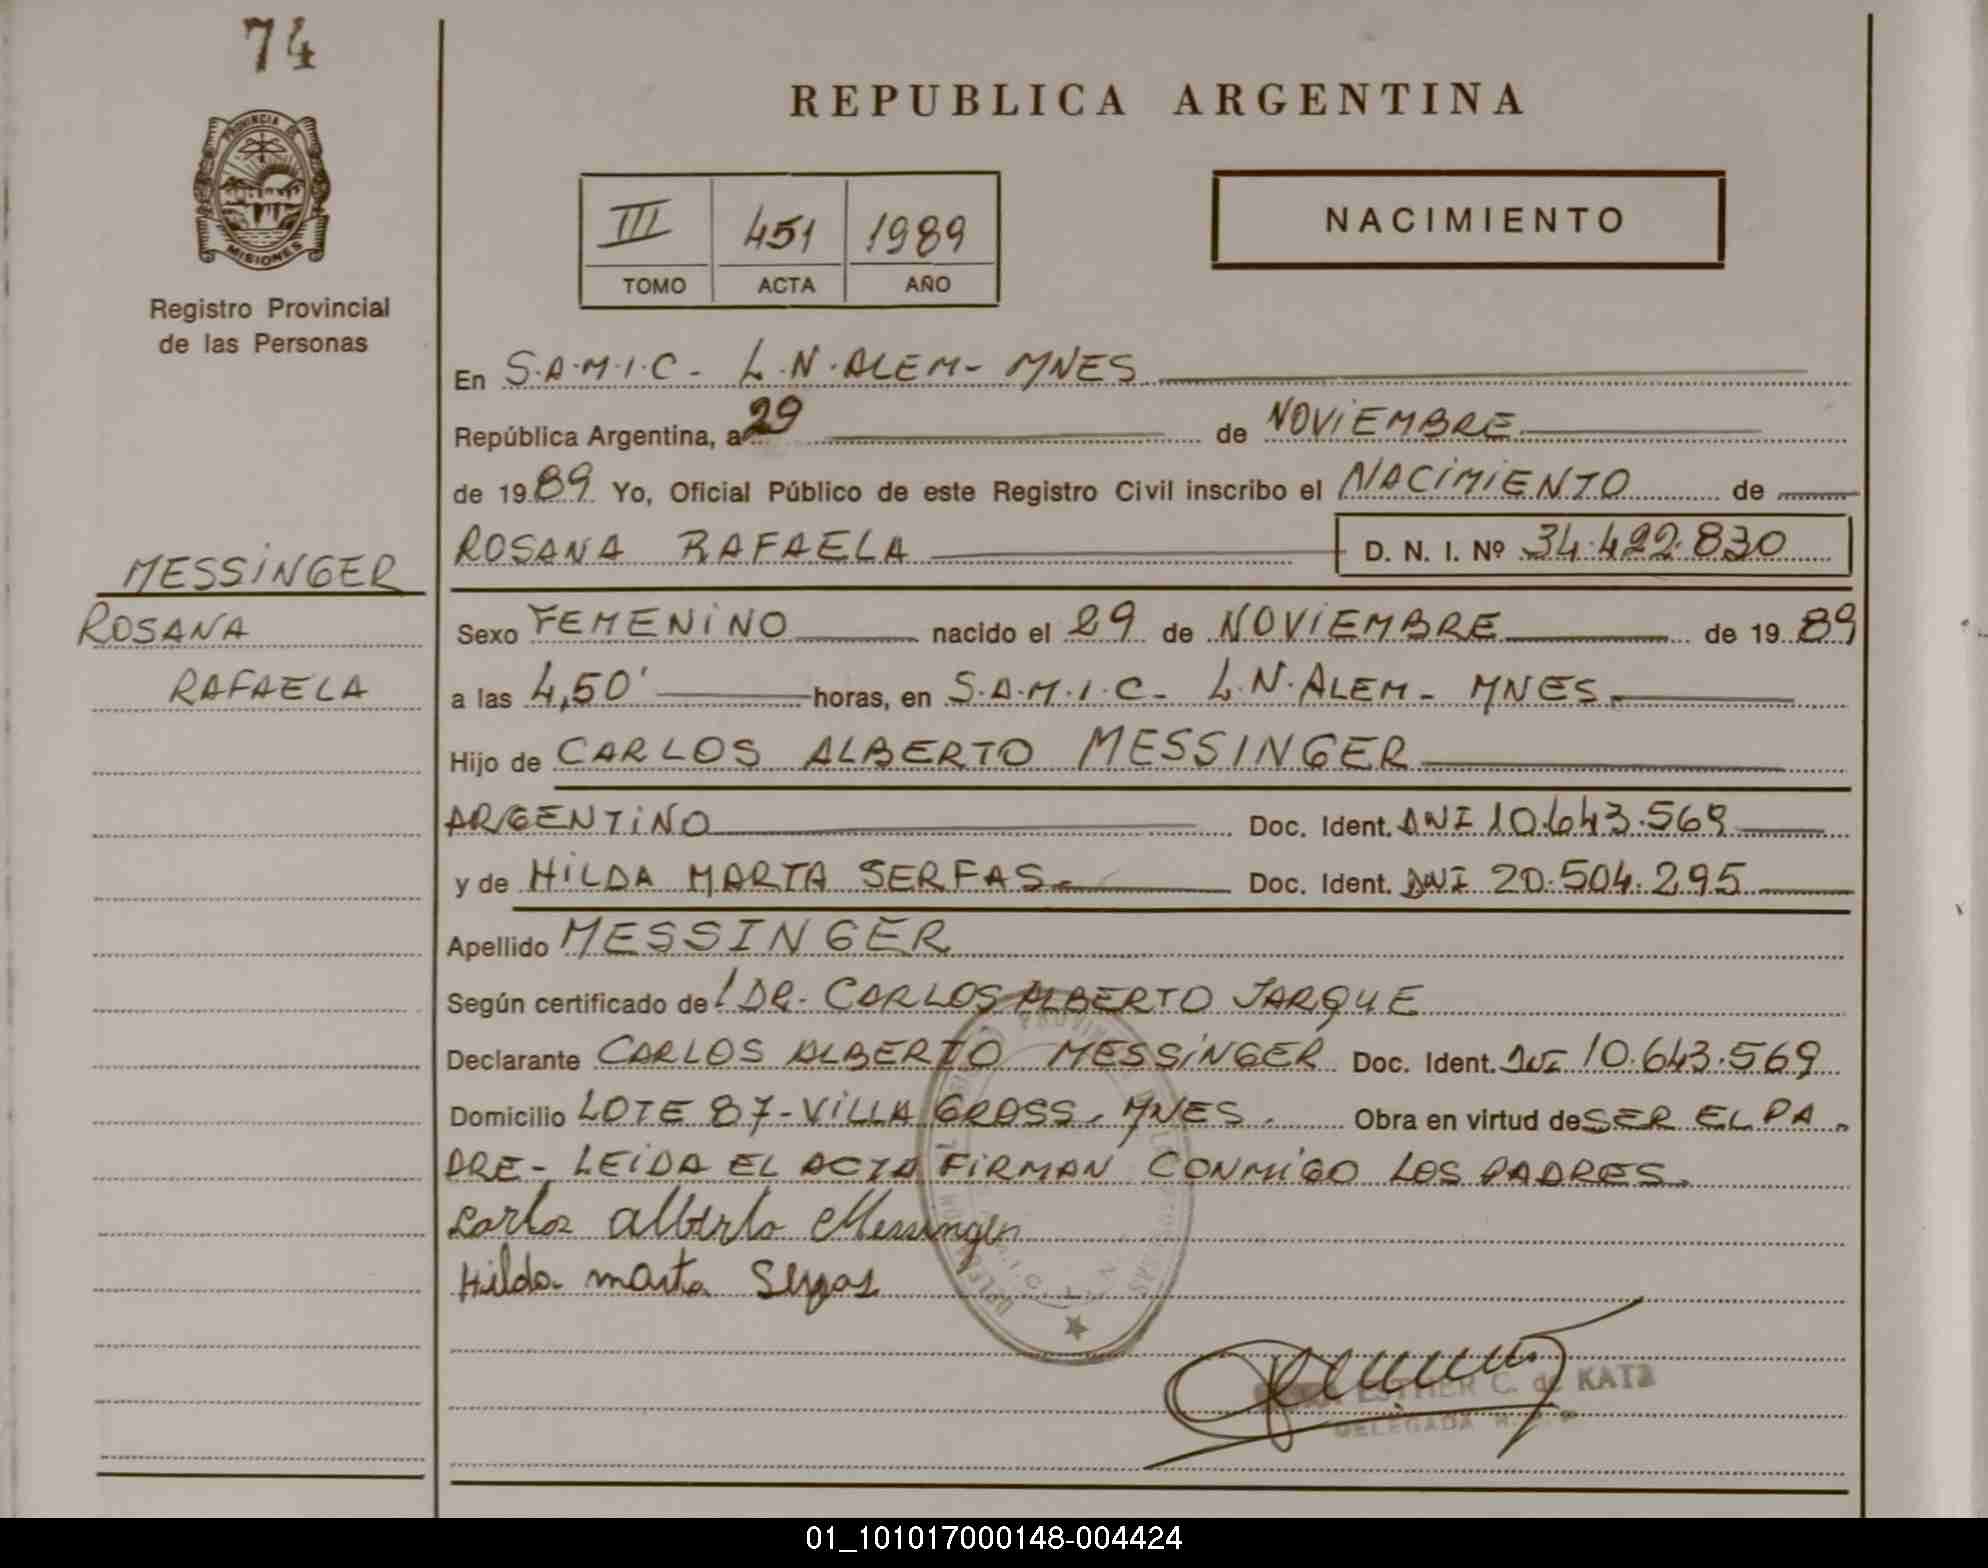 74
REPUBLICA ARGENTINA
PROVINCIA DE
MISIONES
Registro Provincial
de las Personas
III 451 1989
TOMO ACTA AÑO
NACIMIENTO
En S.A.M.I.C- L.N.ALEM- MNES
República Argentina, a 29 de NOVIEMBRE
de 1989 Yo, Oficial Público de este Registro Civil inscribo el NACIMIENTO de
ROSANA RAFAELA D. N. I. Nº 34.422.830
MESSINGER
ROSANA
RAFAELA
Sexo FEMENINO nacido el 29 de NOVIEMBRE de 1989
a las 4,50' horas, en S.A.M.I.C- L.N.ALEM- MNES.
Hijo de CARLOS ALBERTO MESSINGER
ARGENTINO Doc. Ident. DNI 10.643.569
y de HILDA MARTA SERFAS.- Doc. Ident. DNI 20.504.295
Apellido MESSINGER
Según certificado de l DR. CARLOS ALBERTO JARQUE
Declarante CARLOS ALBERTO MESSINGER Doc. Ident. DNI 10.643.569
Domicilio LOTE 87-VILLA GROSS- MNES. Obra en virtud de SER EL PA-
DRE- LEIDA EL ACTA FIRMAN CONMIGO LOS PADRES.
Carlos Alberto Messinger
Hilda marta Serfas
ESTHER C. de KATZ
DELEGADA
01_101017000148-004424